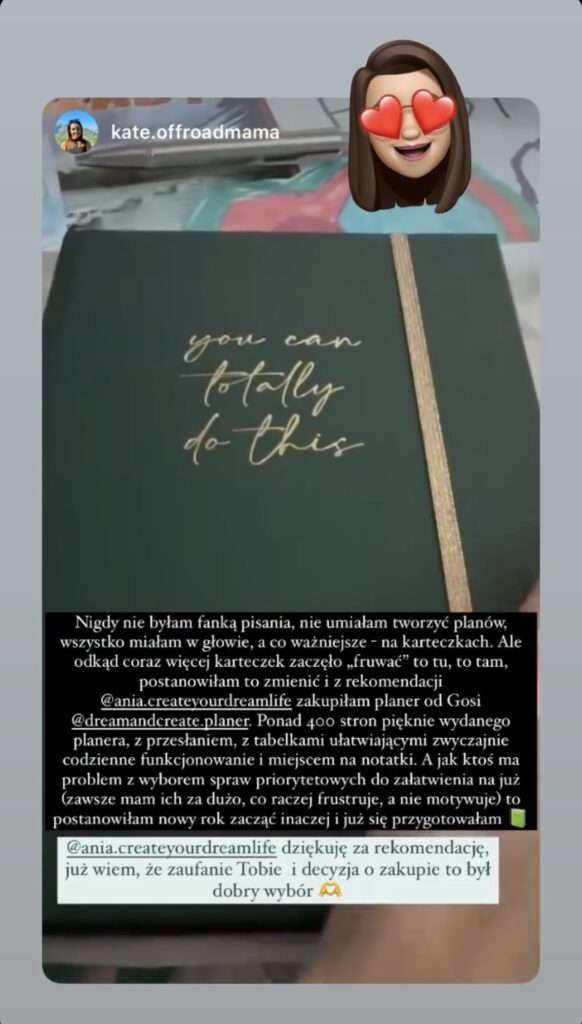 kate.offroadmama
you can
totally
do this
Nigdy nie byłam fanką pisania, nie umiałam tworzyć planów,
wszystko miałam w głowie, a co ważniejsze - na karteczkach. Ale
odkąd coraz więcej karteczek zaczęło „fruwać” to tu, to tam,
postanowiłam to zmienić i z rekomendacji
@ania.createyourdreamlife zakupiłam planer od Gosi
@dreamandcreate.planer. Ponad 400 stron pięknie wydanego
planera, z przesłaniem, z tabelkami ułatwiającymi zwyczajnie
codzienne funkcjonowanie i miejscem na notatki. A jak ktoś ma
problem z wyborem spraw priorytetowych do załatwienia na już
(zawsze mam ich za dużo, co raczej frustruje, a nie motywuje) to
postanowiłam nowy rok zacząć inaczej i już się przygotowałam 📗
@ania.createyourdreamlife dziękuję za rekomendację,
już wiem, że zaufanie Tobie i decyzja o zakupie to był
dobry wybór 🫶